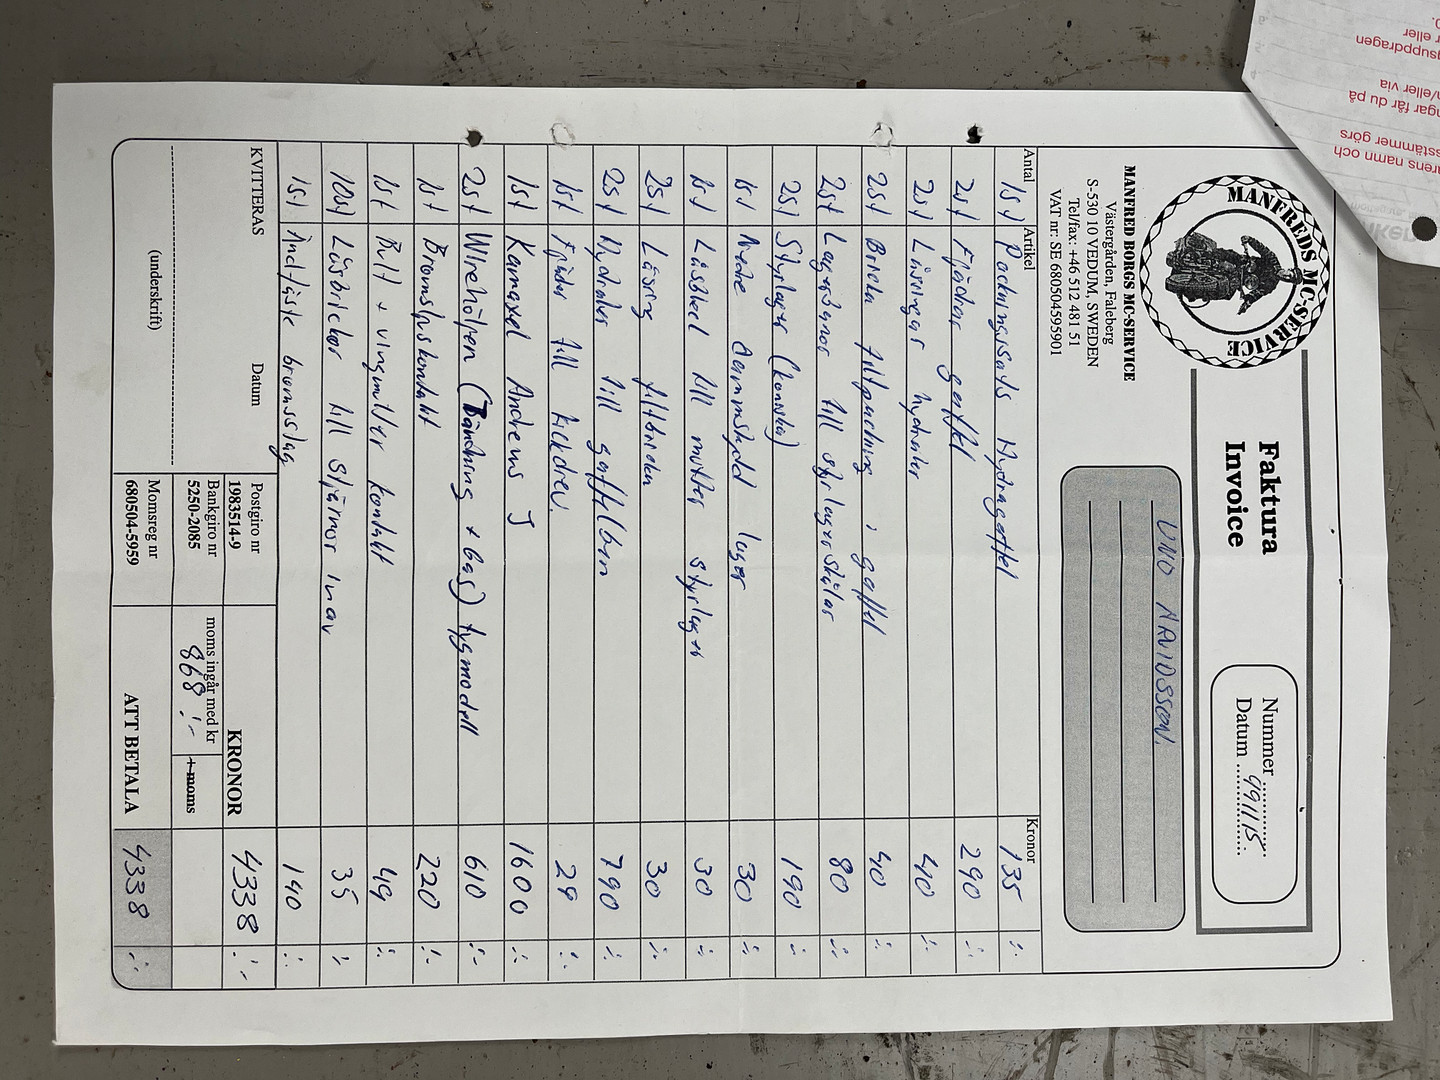 MANFREDS MC-SERVICE
Faktura
Invoice
Nummer
Datum 991115
MANFRED BORGS MC-SERVICE
Västergården, Faleberg
S-530 10 VEDUM, SWEDEN
Tel/fax: +46 512 481 51
VAT nr: SE 680504595901
UNO ARVIDSSON.
Antal Artikel Kronor
1st Packningssats Hydragaffel 135 :-
2st Fjädrar gaffel 290
2st Låsringar hydraler 40 :-
2st Bricka filtpackning i gaffel 40 :-
2st Lagerbanor till styrlagerskålar 80 :-
2st Styrlager (koniska) 190 :-
1st Nedre dammskydd lager 30 :-
1st Låsbleck till mutter styrlager 30 :-
2st Låsring filtbricka 30 :-
2st Hydraler till gaffelben 790 :-
1st Fjäder till kickdrev. 29 :-
1st Kamaxel Andrews J 1600 :-
2st Wirehöljen (Tändning + Gas) tygmodell 610 :-
1st Bromsljuskontakt 220 :-
1st Bult + vingmutter kontakt 49 :-
10st Låsbrickor till stjärnor i nav 35 :-
1st Ändfäste bromsslag 140 :-
KVITTERAS Datum
(underskrift)
Postgiro nr
1983514-9
Bankgiro nr
5250-2085
Momsreg nr
680504-5959
KRONOR 4338 :-
moms ingår med kr
868 :-
+ moms
ATT BETALA 4338 :-
eller
gsuppdragen
/eller via
ngar får du på
sstämmer görs
arens namn och